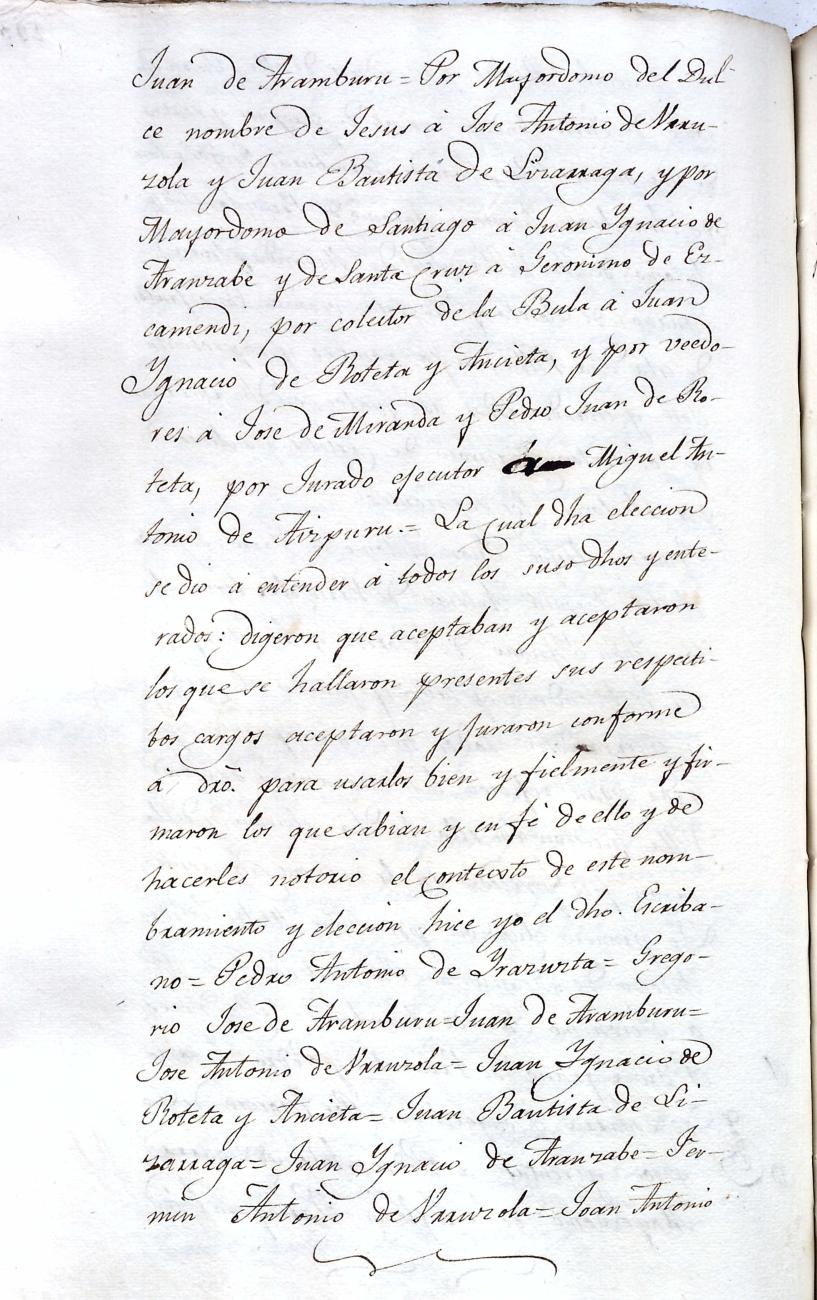 Juan de Aramburu = Por Mayordomo del Dul-
ce nombre de Jesus à Jose Antonio de Vrru-
zola y Juan Bautista de Lizarraga, y por
Mayordomo de Santiago à Juan Ygnacio de
Aranzabe y de Santa Cruz à Geronimo de Ez-
camendi, por colector de la Bula à Juan
Ygnacio de Roteta y Ancieta, y por veedo-
res à Jose de Miranda y Pedro Juan de Ro-
teta, por Jurado ejecutor à Miguel An-
tonio de Aizpuru. = La qual dha eleccion
se dio à entender à todos los suso dhos y ente-
rados: digeron que aceptaban y aceptaron
los que se hallaron presentes sus respecti-
bos cargos aceptaron y juraron conforme
à dro. para usarlos bien y fielmente y fir-
maron los que sabian y en fé de ello y de
hacerles notorio el contexto de este nom-
bramiento y eleccion hice yo el dho. Escriba-
no = Pedro Antonio de Yrazuzta = Grego-
rio Jose de Aramburu = Juan de Aramburu =
Jose Antonio de Vrruzola = Juan Ygnacio de
Roteta y Ancieta = Juan Bautista de Li-
zarraga = Juan Ygnacio de Aranzabe = Fer-
min Antonio de Vrruzola = Joan Antonio